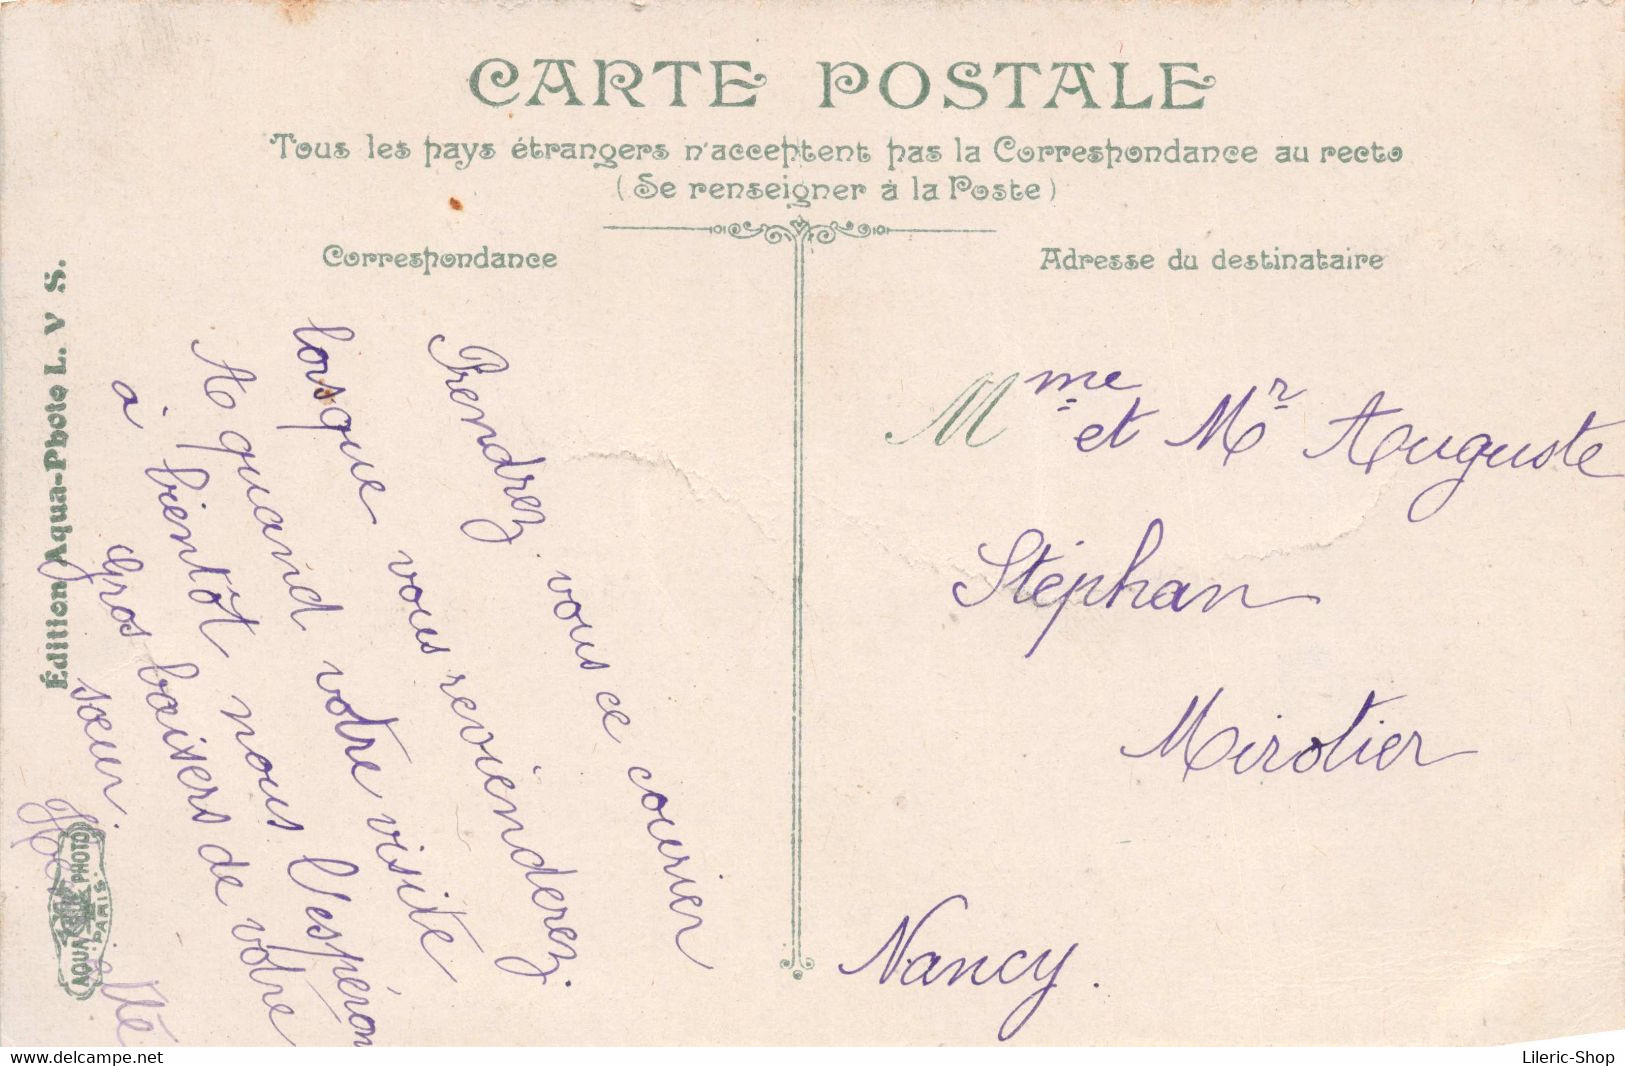 CARTE POSTALE
Tous les pays étrangers n'acceptent pas la Correspondance au recto
(Se renseigner à la Poste)
Correspondance
Adresse du destinataire
Prendrez vous ce courier
lorsque vous reviénderez.
A quand votre visite
à bientot nous l'espéron
Gros baisers de votre
sœur.
Mme et Mr Auguste
Stéphan
Mirotier
Nancy.
Édition Aqua-Photo L. V S.
AQUA PHOTO
PARIS
www.delcampe.net
Lileric-Shop